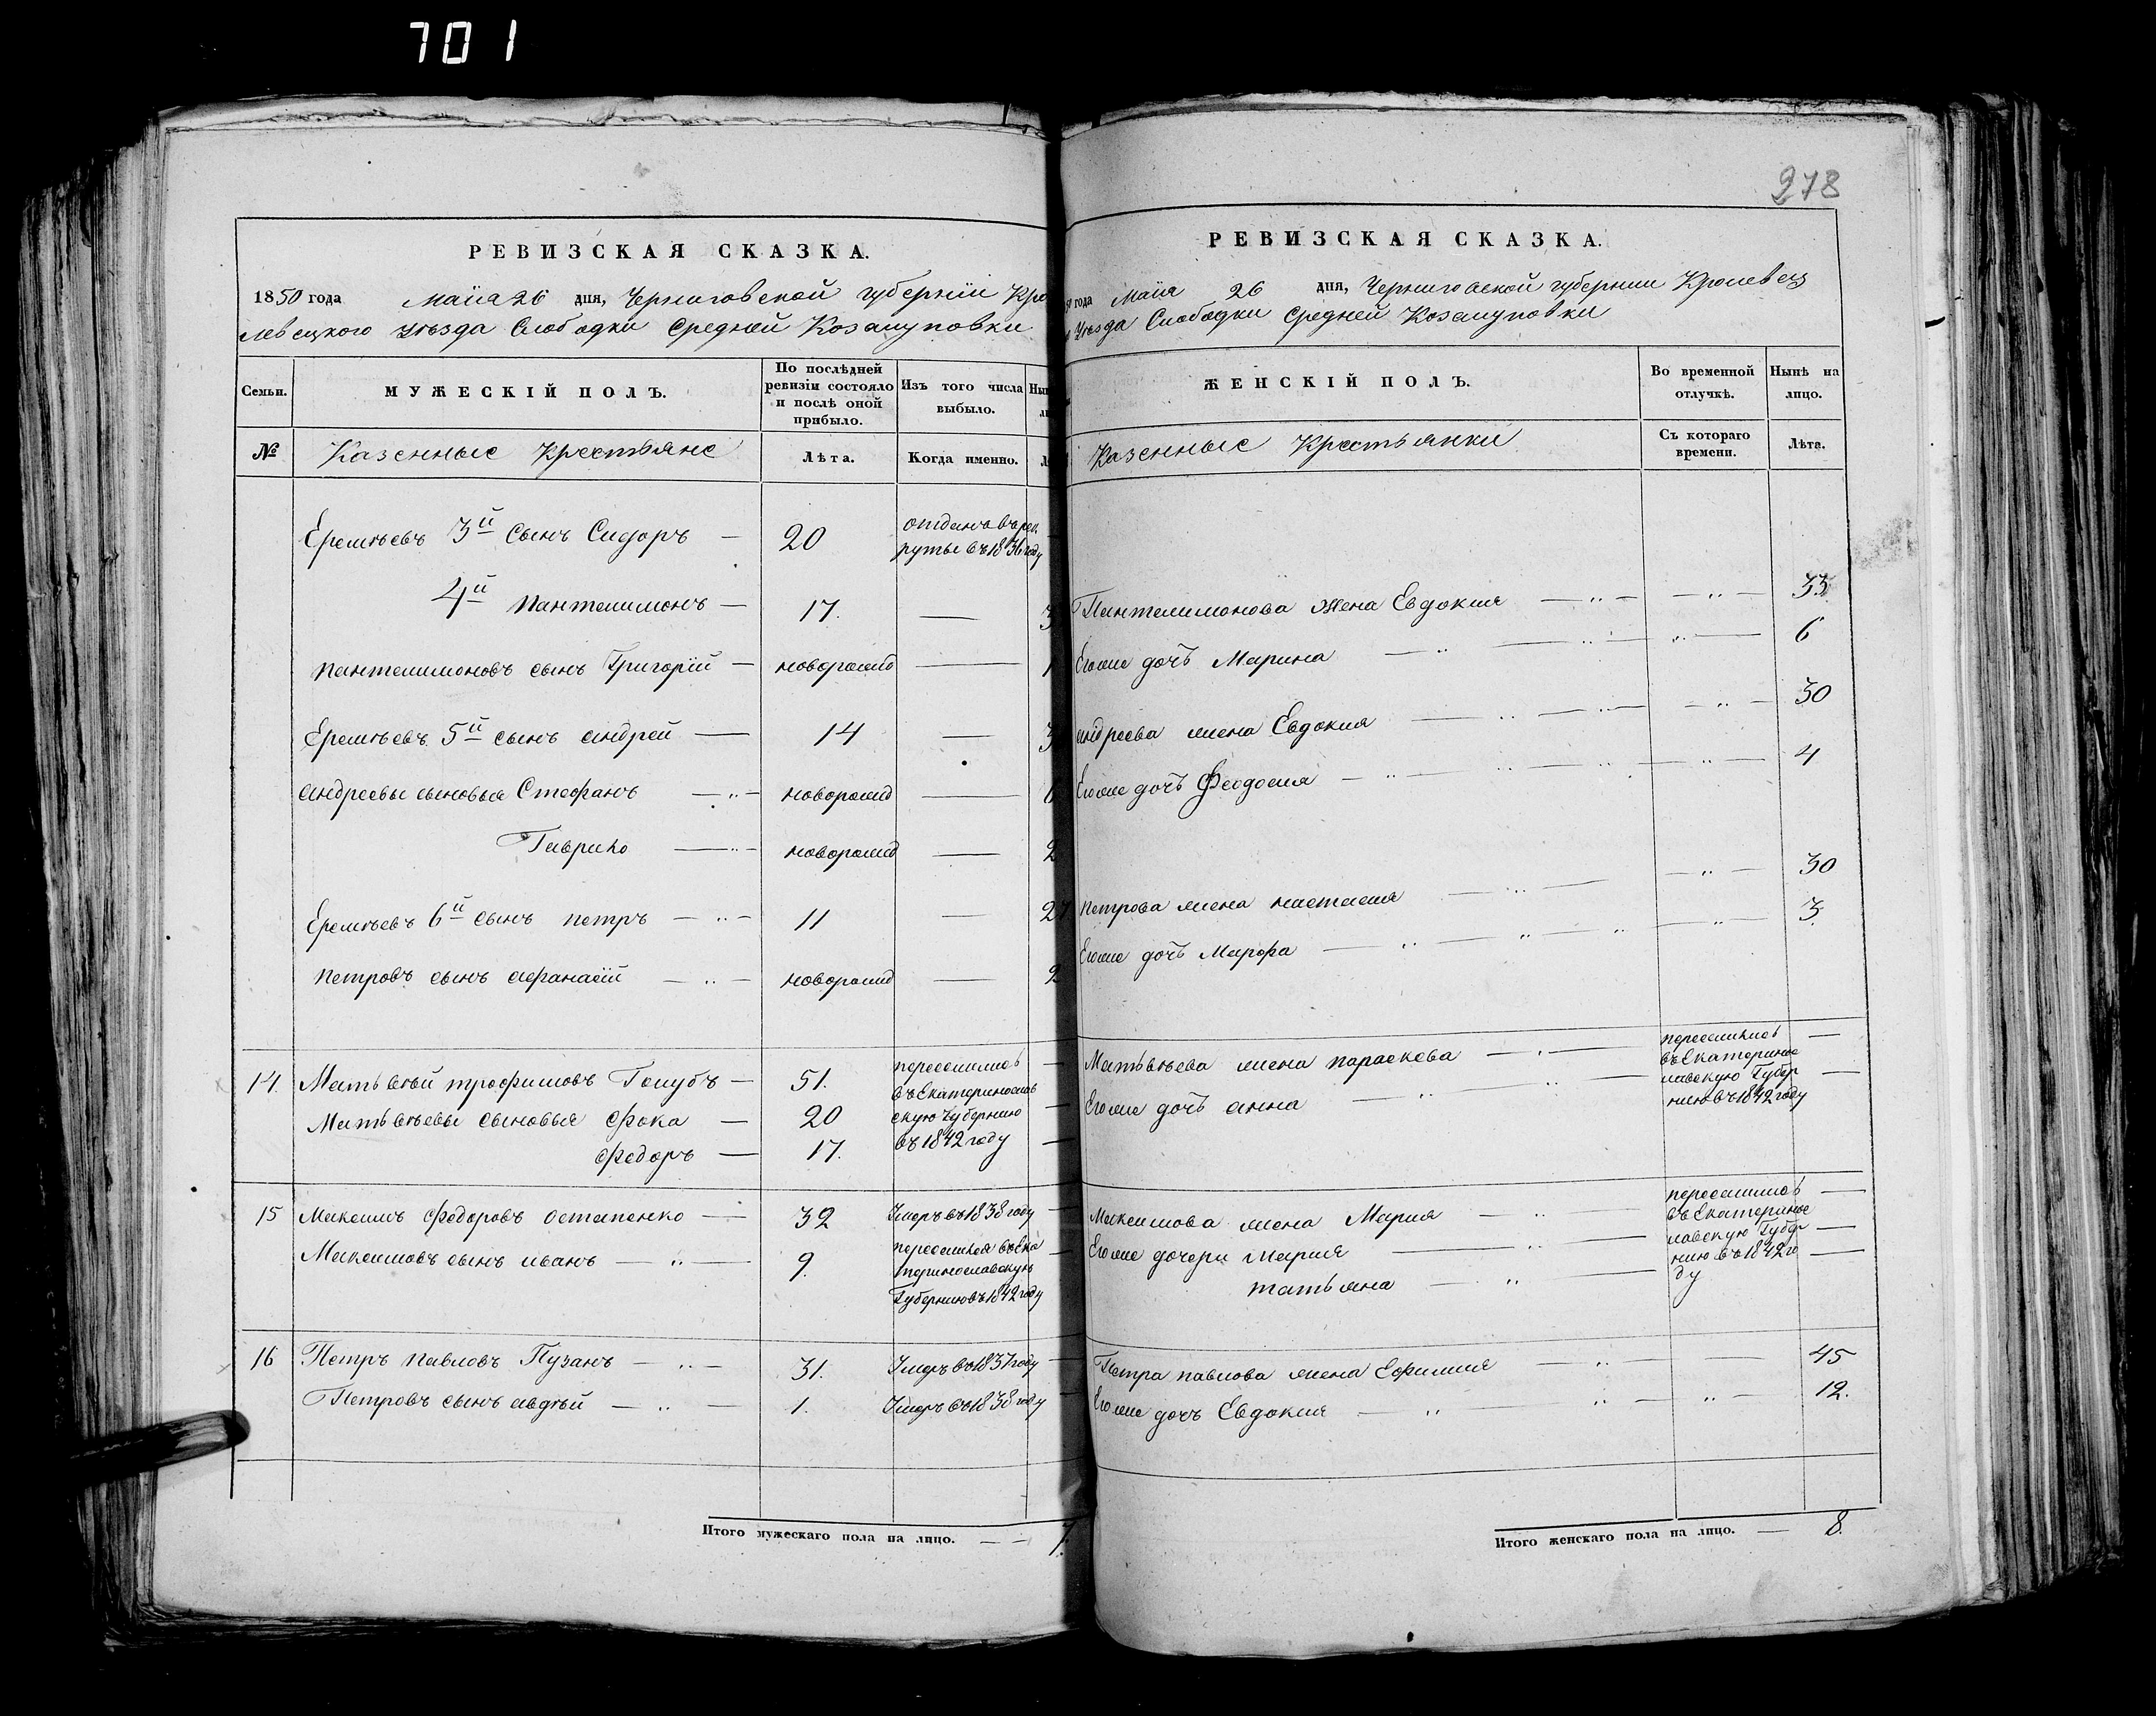 701
РЕВИЗСКАЯ СКАЗКА.
1850 года Маїя 26 дня, Черниговской губерніи Кро
левецкого уѣзда Слободки Средней Козацуповки
Семьи.
МУЖЕСКІЙ ПОЛЪ.
По послѣдней
ревизіи состояло
и послѣ оной
прибыло.
Изъ того числа
выбыло.
№
Казенные Крестьяне
Лѣта.
Когда именно.
Еремѣевъ 3й сынъ Сидоръ — 20 отданъ въ рек
руты въ 1836 году
4й Пантелимонъ — 17. —
Пантелимоновъ сынъ Григорій — новорожд —
Еремѣевъ 5й сынъ Андрей — 14 —
Андреевы сыновья Стефанъ — новорожд —
Гаврило — новорожд — 2
Еремѣевъ 6й сынъ Петръ — 11 — 27
Петровъ сынъ Афанасій — новорожд — 2
14. Матвѣй Трофимовъ Голубъ — 51. переселился
въ Екатеринослав
Матвѣевы сыновья Фока — 20 скую губернию
Федоръ — 17. въ 1842 году
15 Максимъ Федоровъ Остапенко — 32 Умеръ въ 1838 году
Максимовъ сынъ Иванъ — 9. переселился въ Ека
теринославскую
Губернию въ 1842 году
16 Петръ Павловъ Пузанъ — 31. Умеръ въ 1837 году
Петровъ сынъ Авдѣй — 1. Умеръ въ 1838 году
Итого мужескаго пола на лицо. — 7.
278
РЕВИЗСКАЯ СКАЗКА.
года Маїя 26 дня, Черниговской губернии Кролевец
Уѣзда Слободки Средней Козацуповки
ЖЕНСКІЙ ПОЛЪ.
Во временной
отлучкѣ.
Нынѣ на
лицо.
Казенные Крестьянки
Съ котораго
времени.
Лѣта.
Пантелимонова жена Евдокия — 33.
Его же дочь Марина — 6
Андреева жена Евдокия — 30
Его же дочь Феодосия — 4
Петрова жена Настасия — 30
Его же дочь Марфа — 3.
Матвѣева жена Параскева — переселился
въ Екатеринос
Его же дочь Анна — лавскую Губер
нию въ 1842 году
Максимова жена Мария — переселился
въ Екатеринос
Его же дочери Мария — лавскую Губер
Татьяна — нию въ 1842 го
ду
Петра Павлова жена Ефимия — 45
Его же дочь Евдокия — 12.
Итого женскаго пола на лицо. — 8.